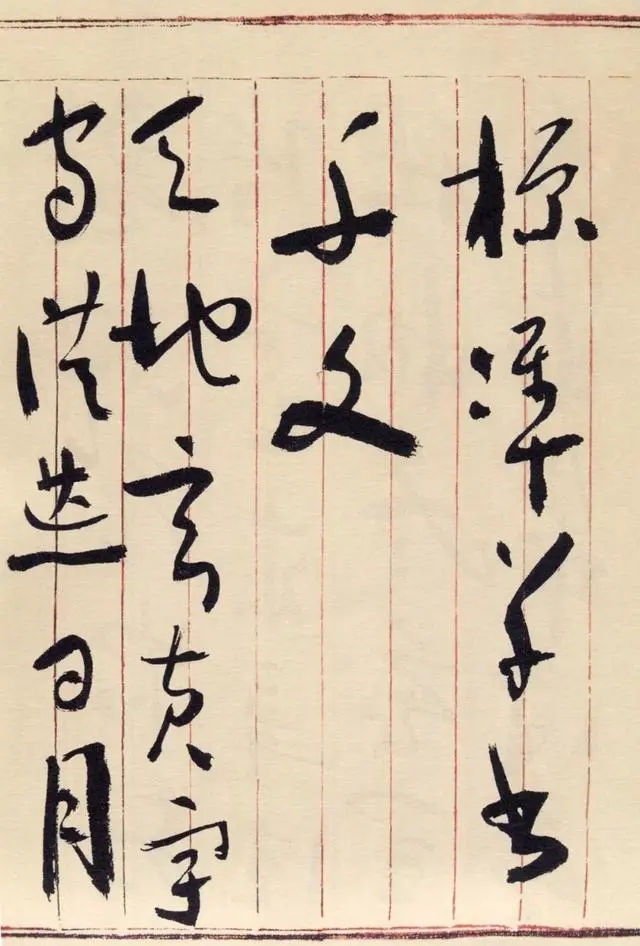 標準草書
千文
天地玄黃宇
宙洪荒日月